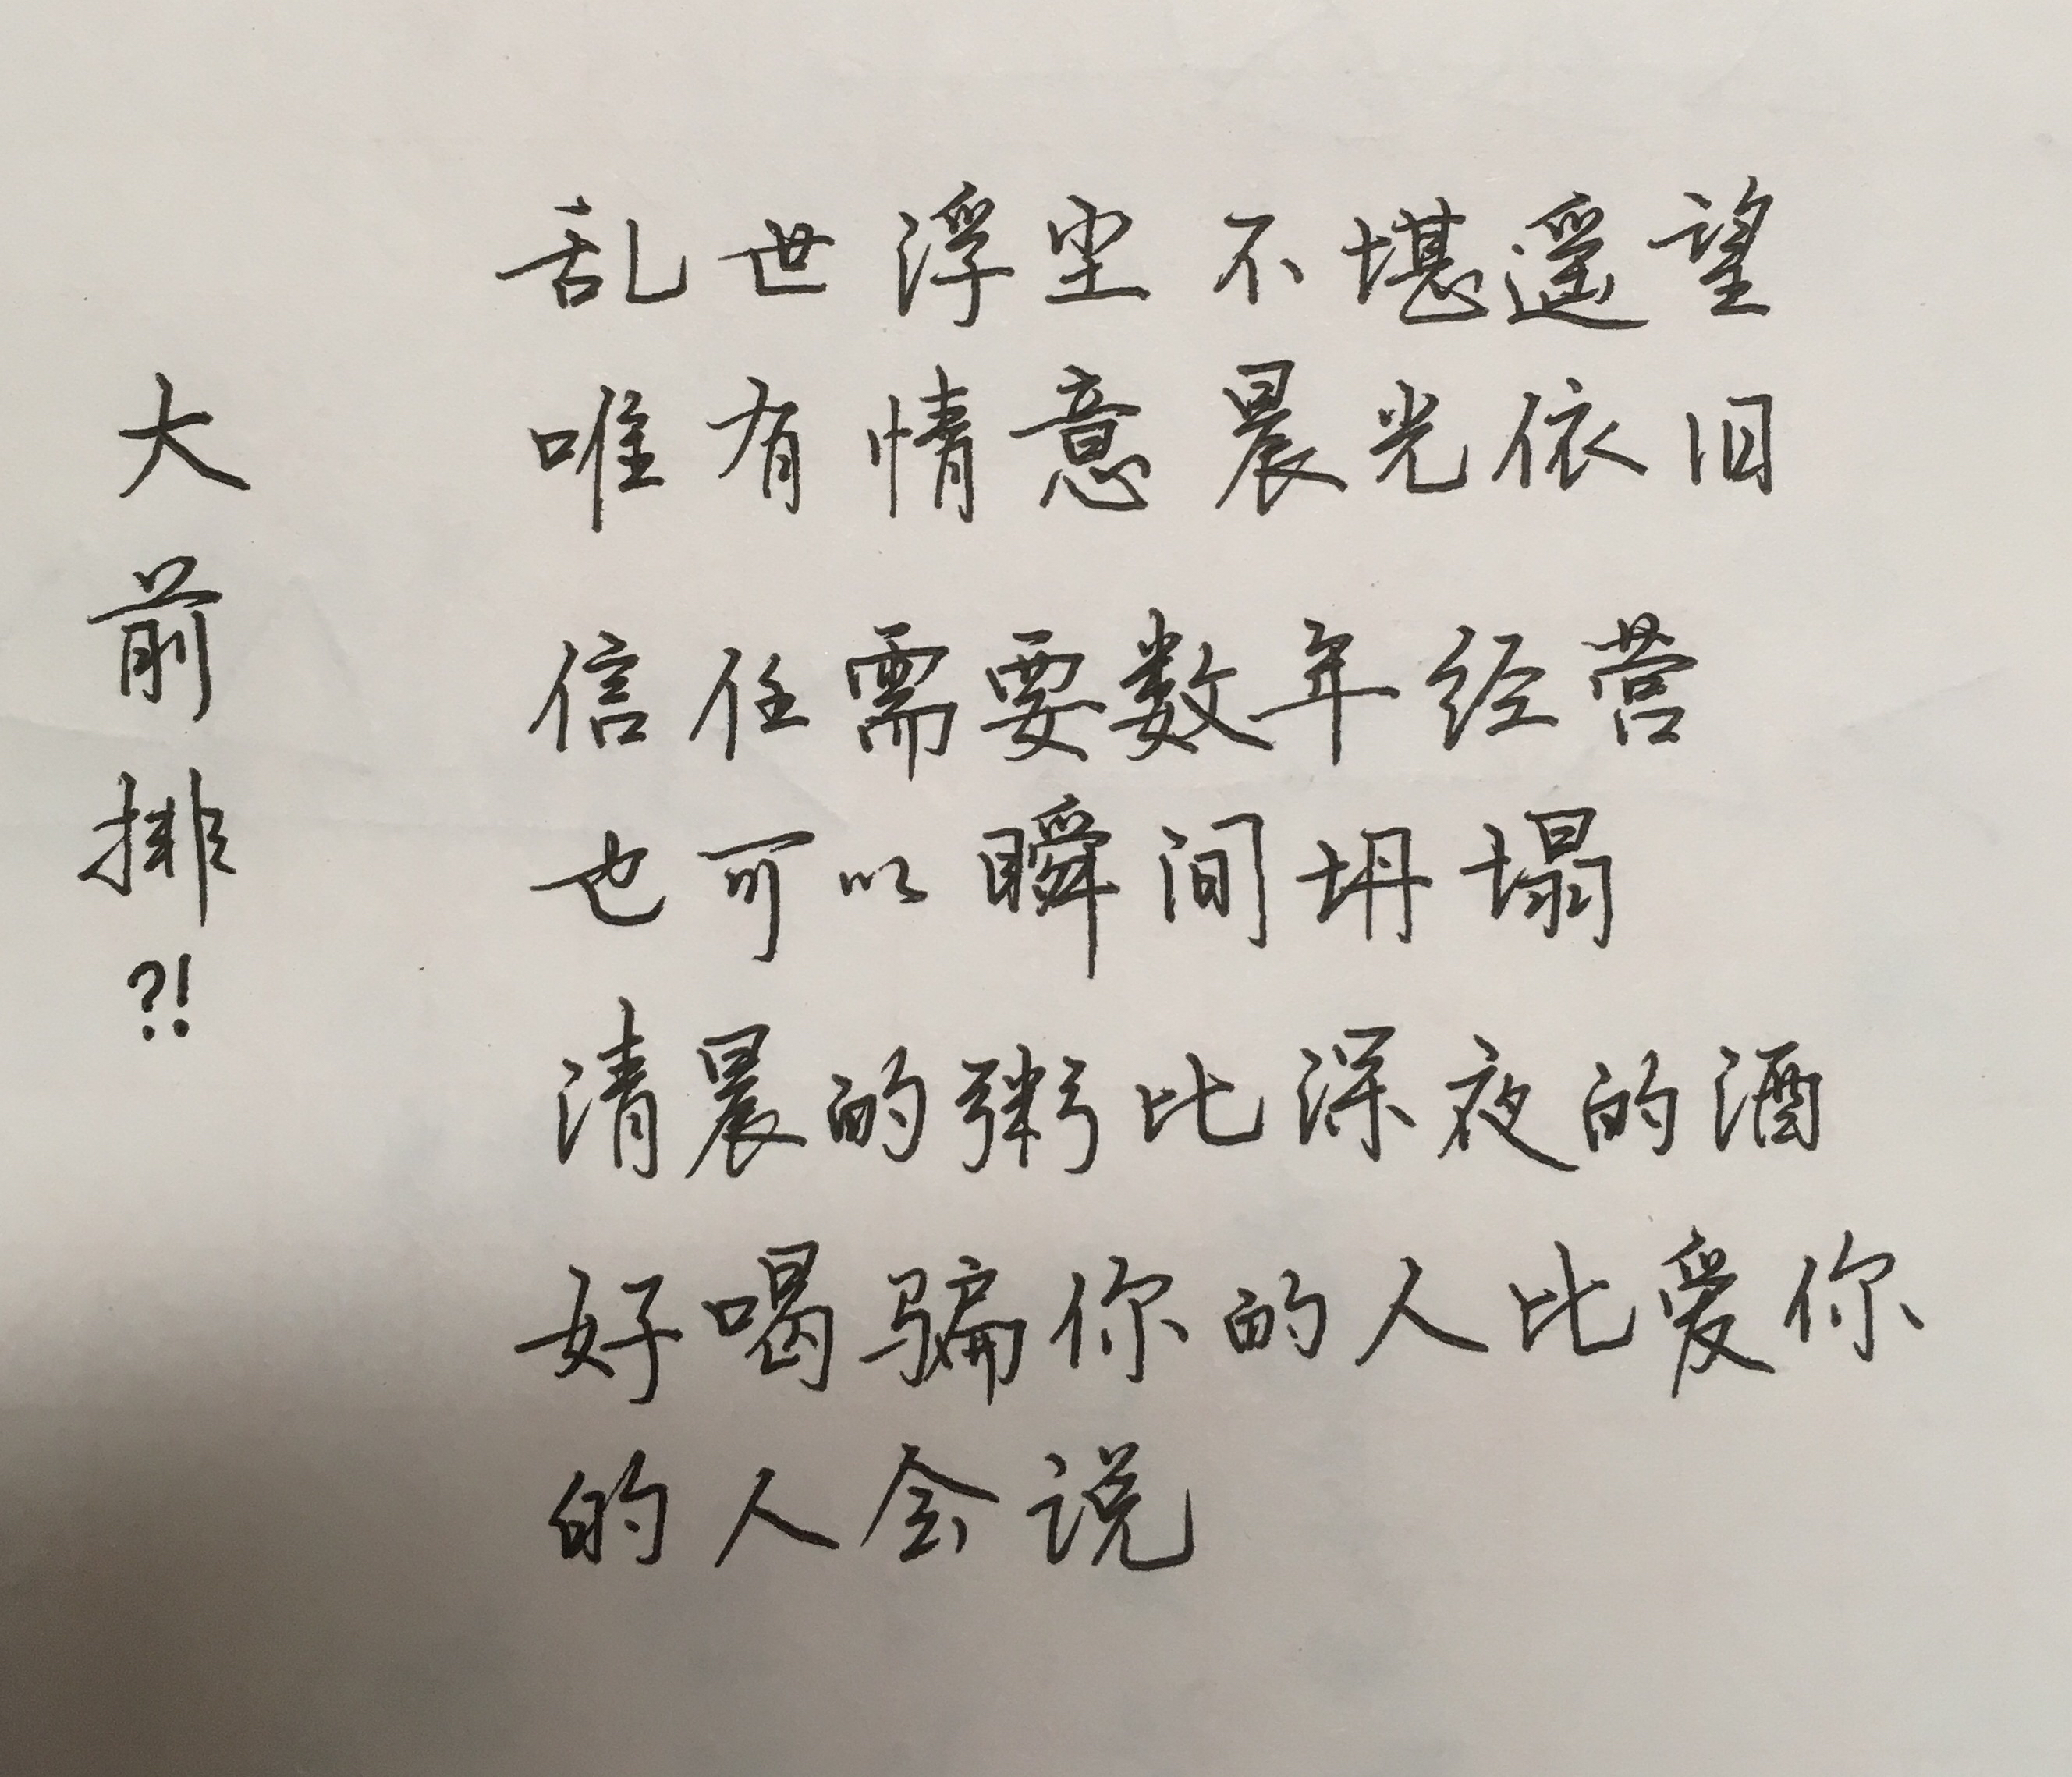 乱世浮尘不堪遥望
唯有情意晨光依旧
信任需要数年经营
也可以瞬间坍塌
清晨的粥比深夜的酒
好喝骗你的人比爱你
的人会说
大前排?!